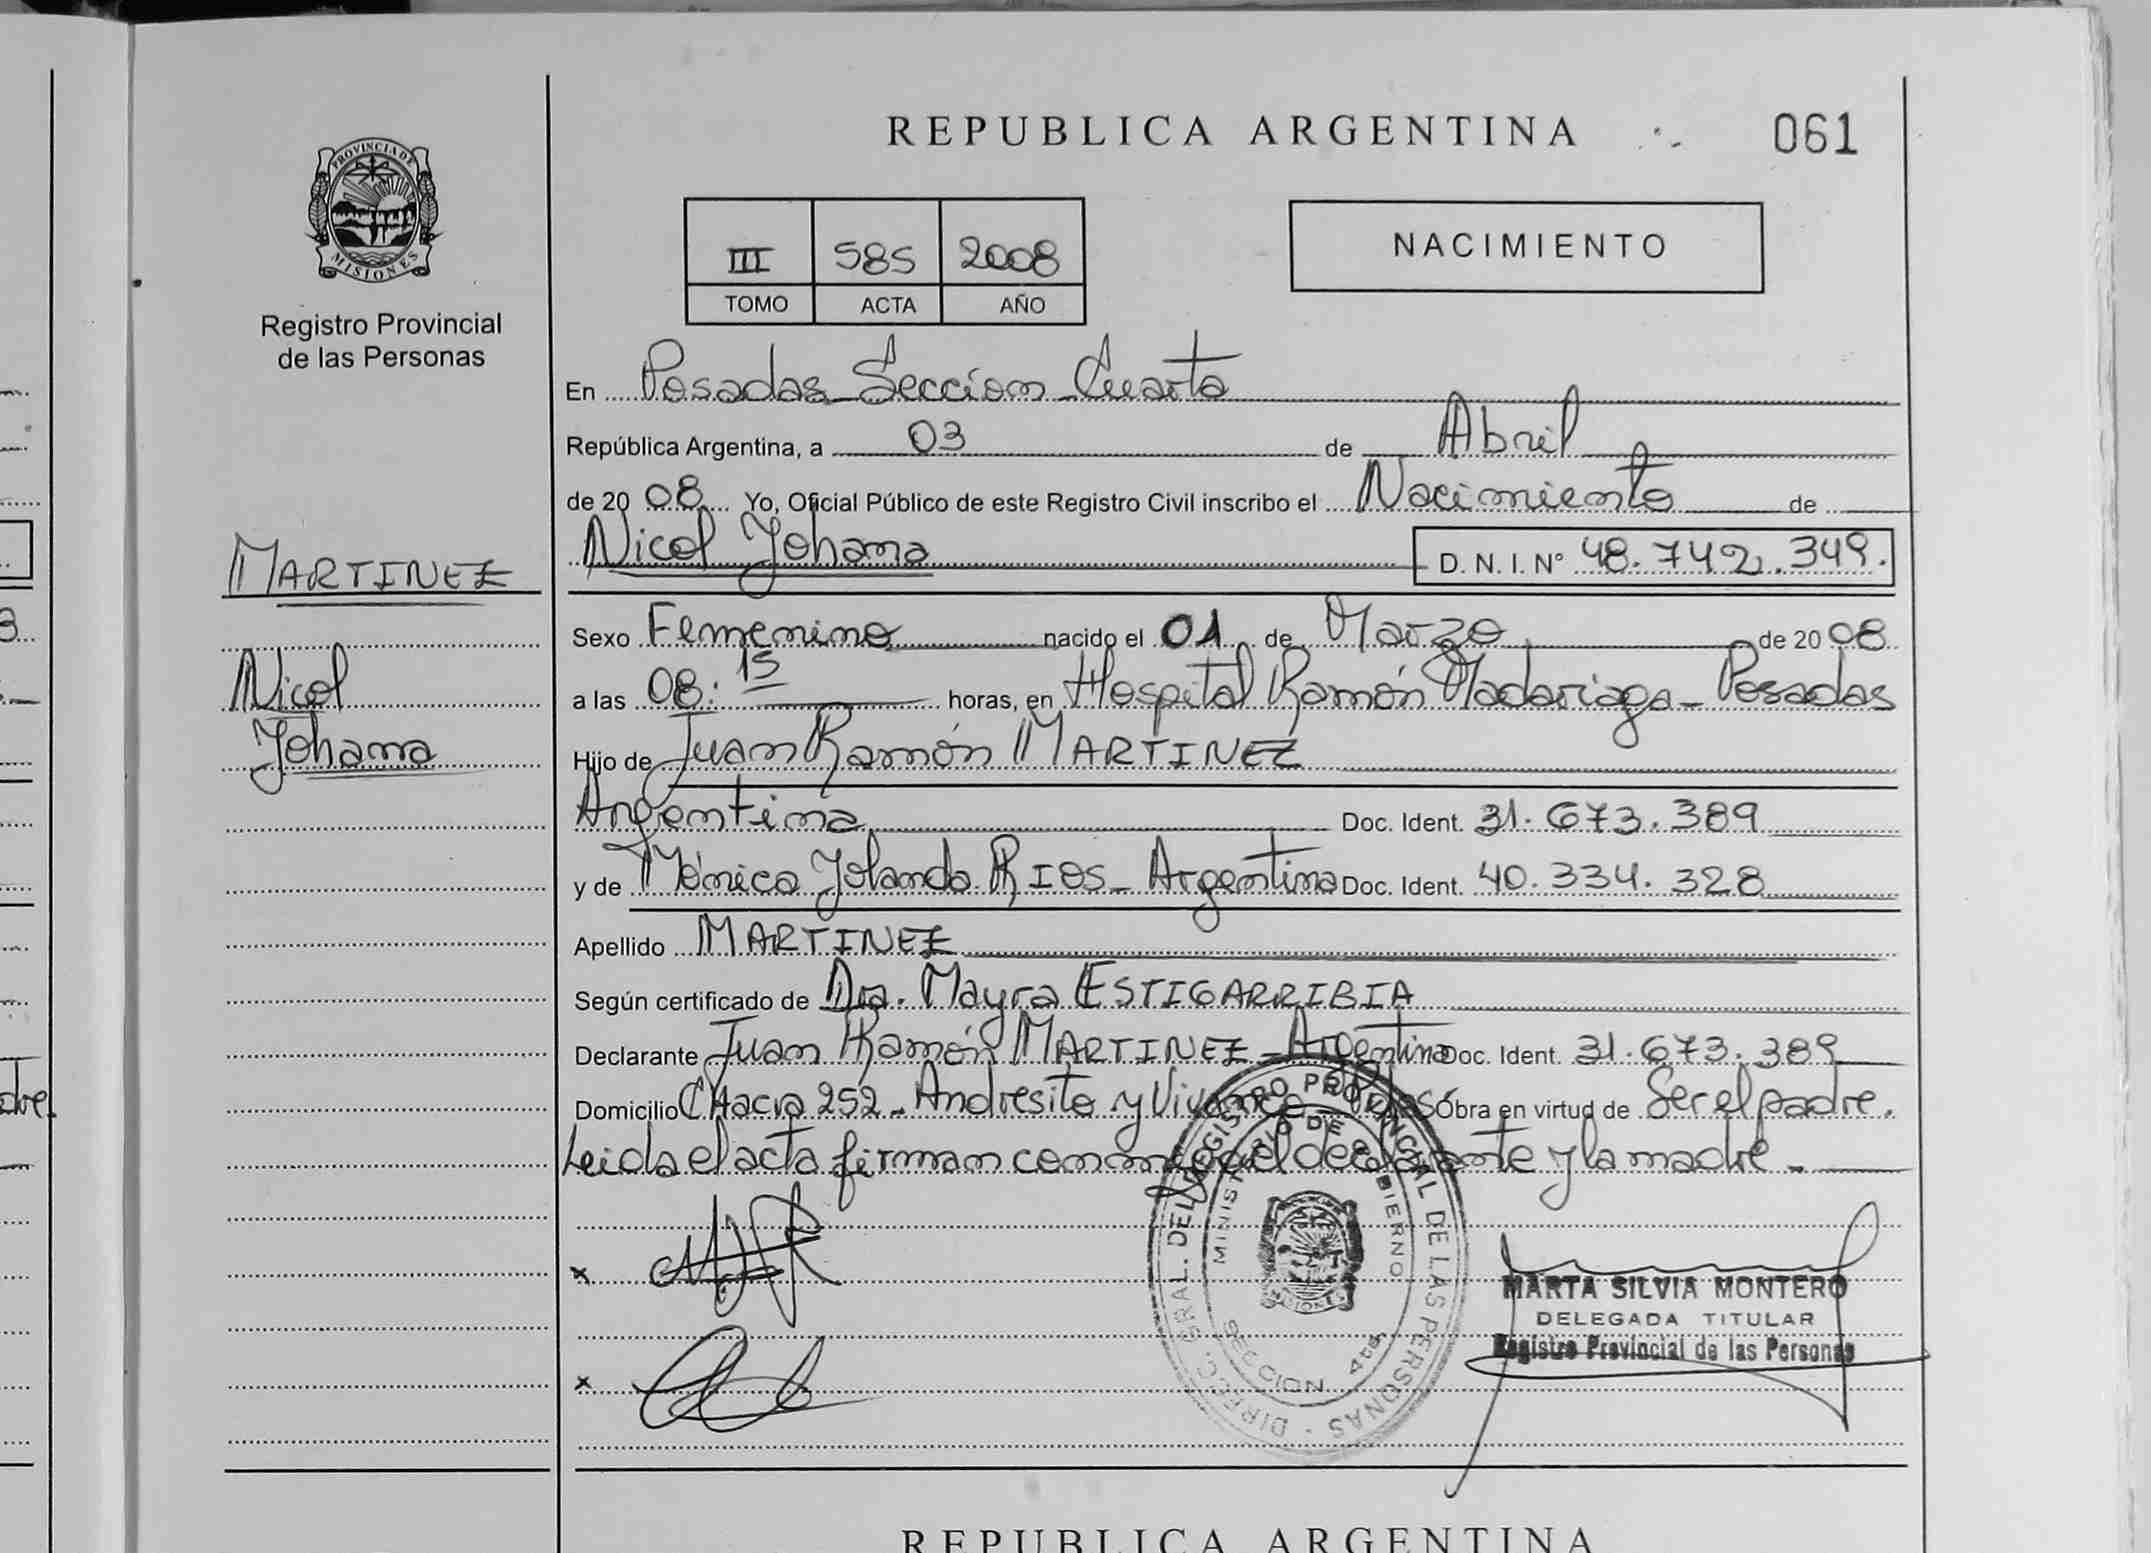 REPUBLICA ARGENTINA
061
PROVINCIA DE
MISIONES
Registro Provincial
de las Personas
III 585 2008
TOMO ACTA AÑO
NACIMIENTO
En Posadas - Sección Cuarta
República Argentina, a 03 de Abril
de 20 08 Yo, Oficial Público de este Registro Civil inscribo el Nacimiento de
MARTINEZ
Nicol Yohana
Nicol Yohana D. N. I. Nº 48.742.349.
Sexo Femenino nacido el 01 de Marzo de 20 08
a las 08:15 horas, en Hospital Ramón Madariaga - Posadas
Hijo de Juan Ramón MARTINEZ
Argentina Doc. Ident. 31.673.389
y de Mónica Yolanda RIOS - Argentina Doc. Ident. 40.334.328
Apellido MARTINEZ
Según certificado de Dra. Mayra ESTIGARRIBIA
Declarante Juan Ramón MARTINEZ - Argentina Doc. Ident. 31.673.389
Domicilio CHacra 252 - Andresito y Vivanco - Obra en virtud de Ser el padre.
Leida el acta firman conmigo el declarante y la madre -
DIRECC. GRAL. DEL REGISTRO PROVINCIAL DE LAS PERSONAS
MINISTERIO DE GOBIERNO
MISIONES
SECCION 4ta
x
x
MARTA SILVIA MONTERO
DELEGADA TITULAR
Registro Provincial de las Personas
REPUBLICA ARGENTINA